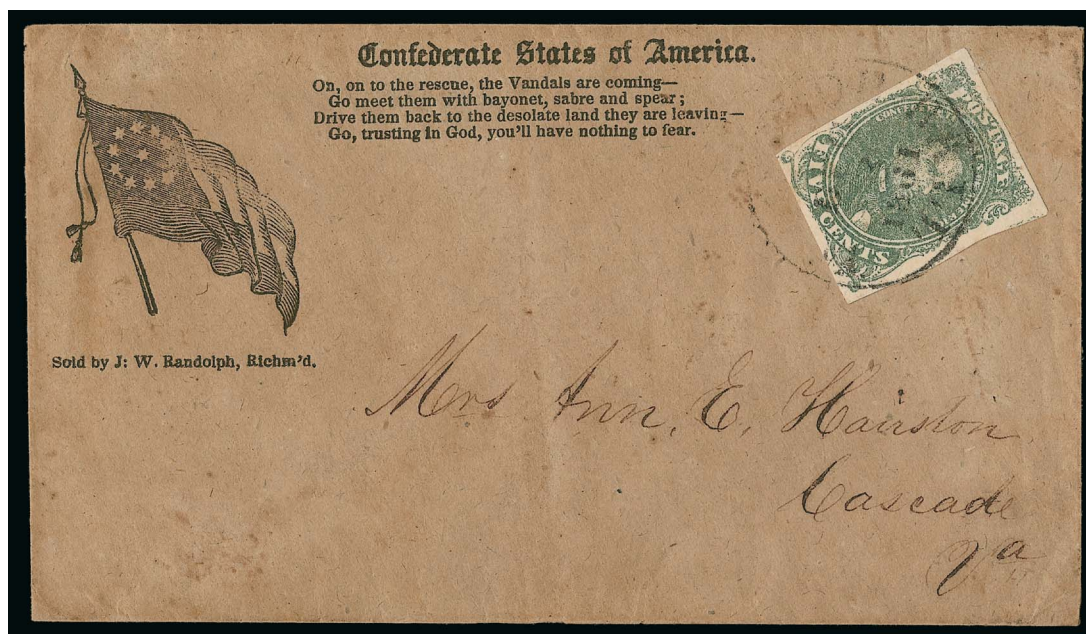 Confederate States of America.
On, on to the rescue, the Vandals are coming—
Go meet them with bayonet, sabre and spear;
Drive them back to the desolate land they are leaving—
Go, trusting in God, you'll have nothing to fear.
POSTAGE
CENTS
1861
Sold by J: W. Randolph, Richm'd.
Mrs Ann, E, Hairston
Cascade
Va